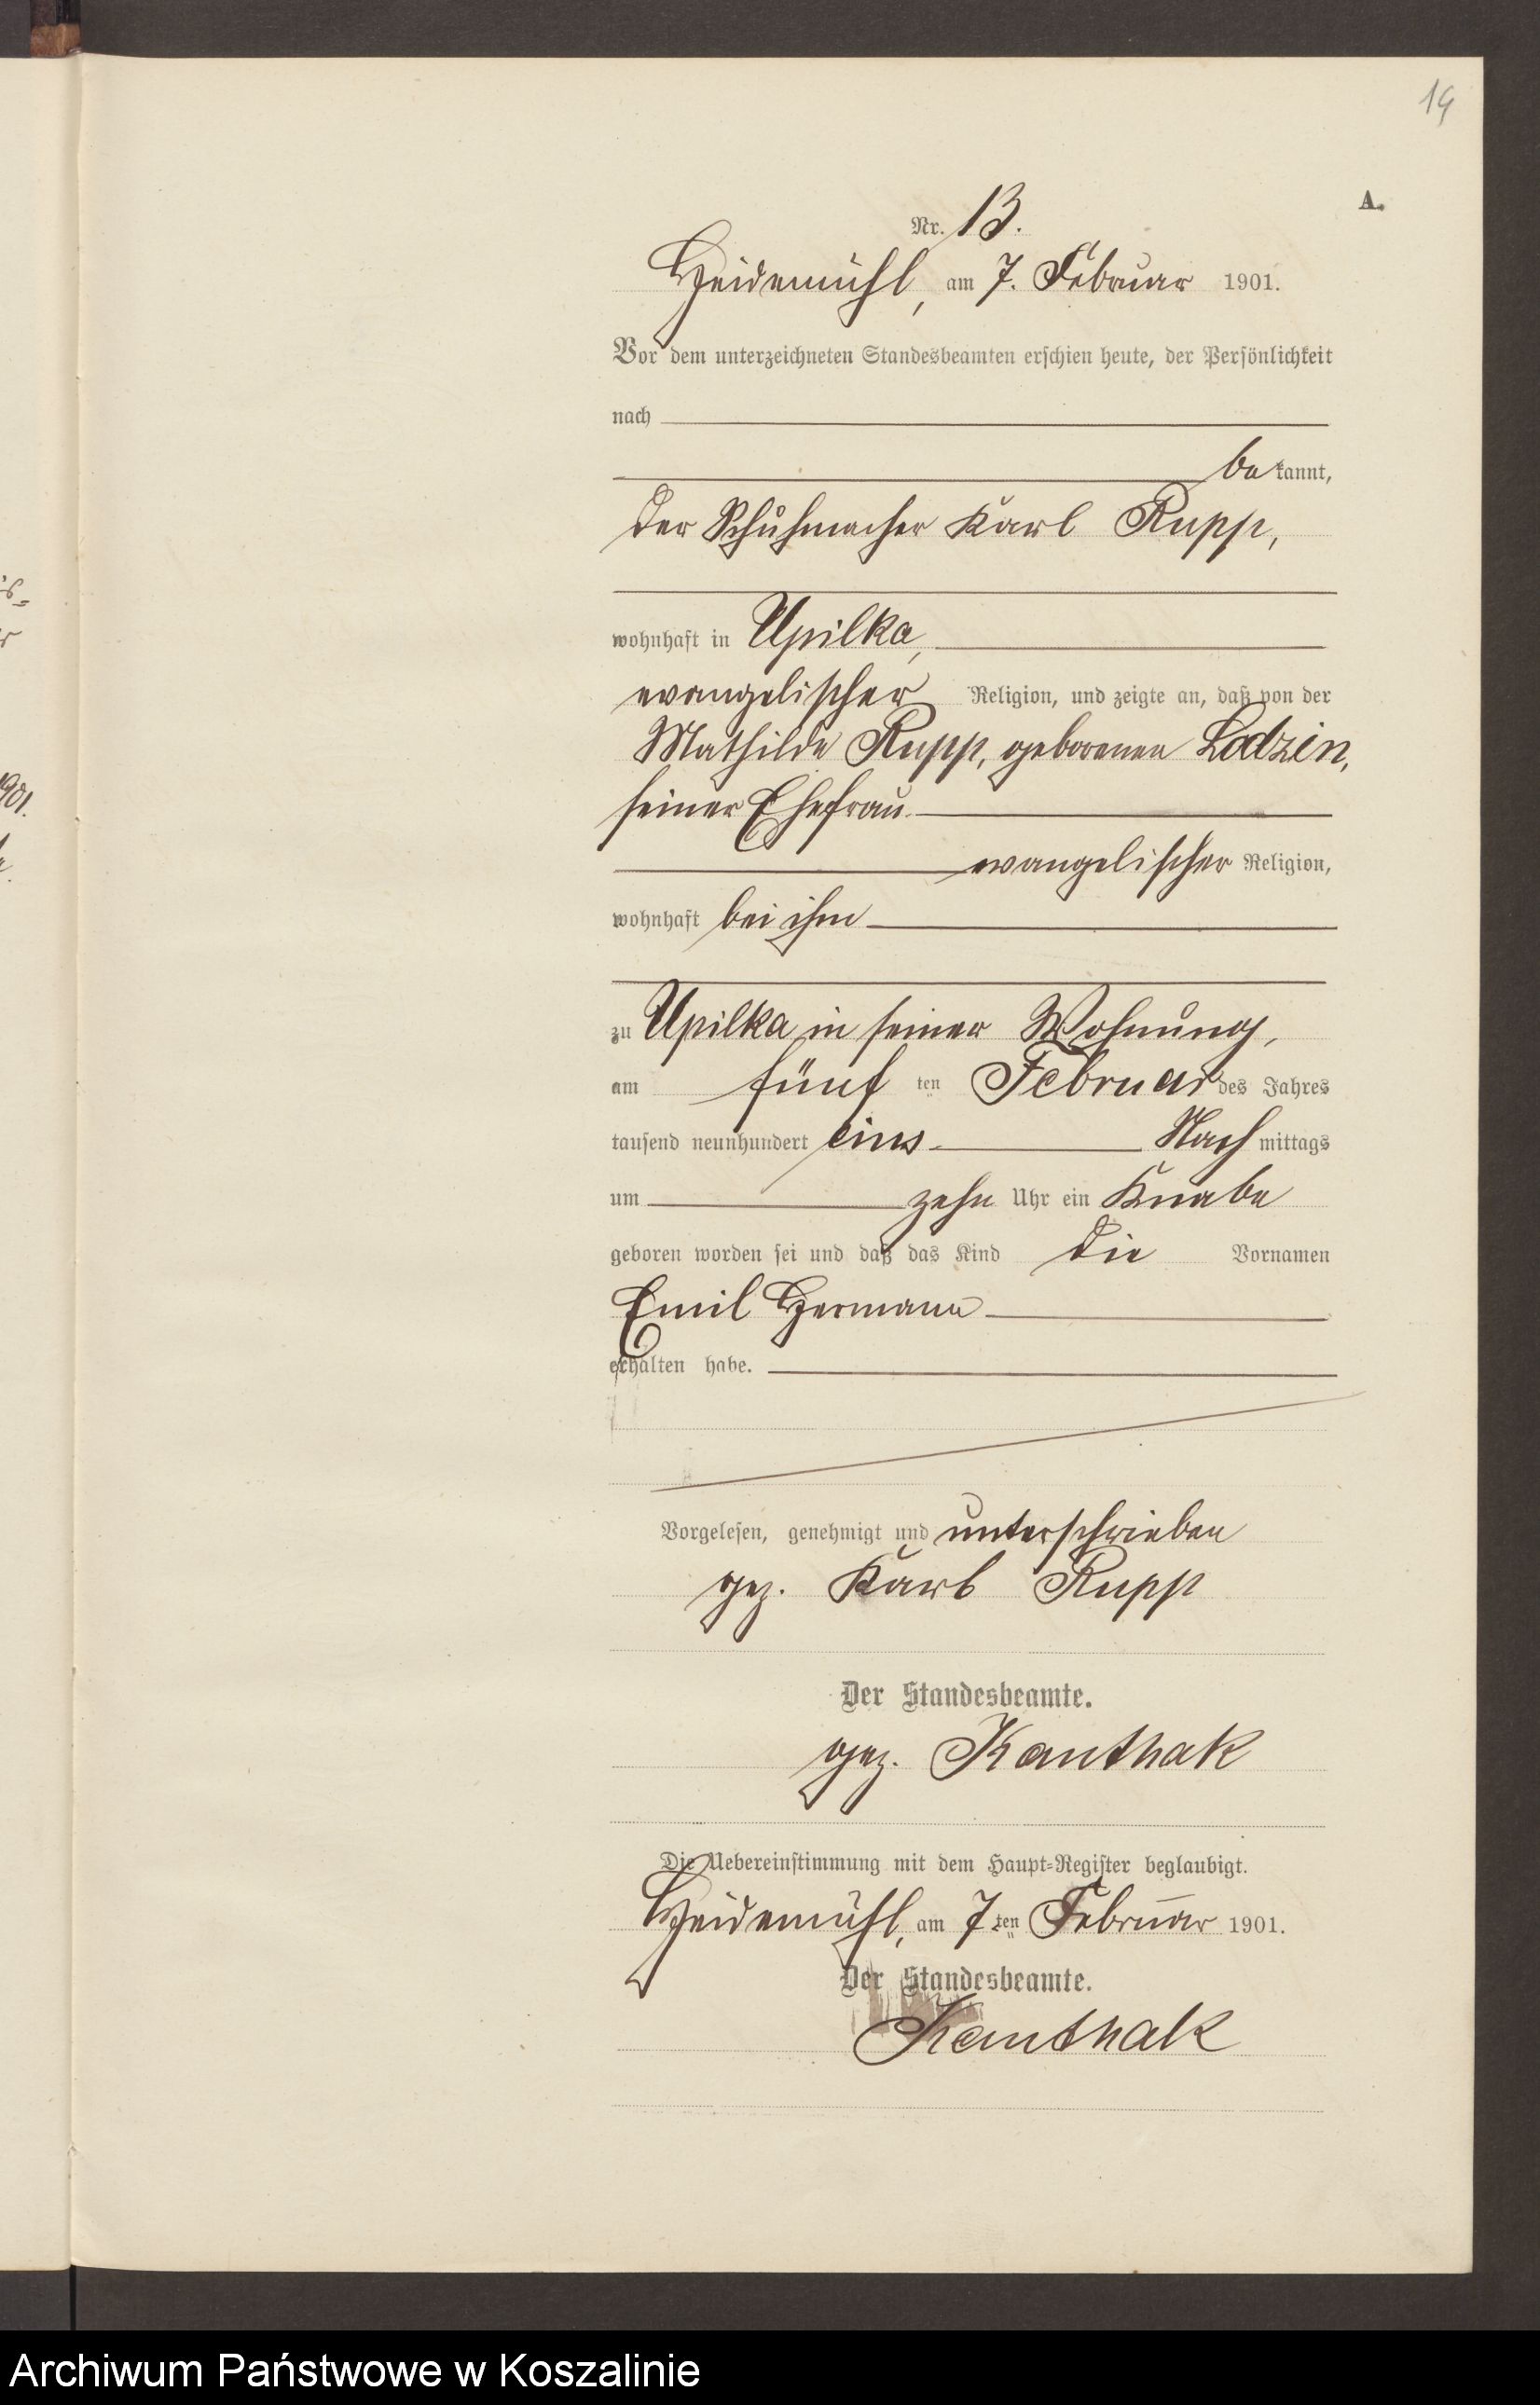 14
A.
Nr. 13.
Heidemühl, am 7. Februar 1901.
Vor dem unterzeichneten Standesbeamten erschien heute, der Persönlichkeit
nach
bekannt,
der Schuhmacher Karl Rupp,
wohnhaft in Upilka,
evangelischer Religion, und zeigte an, daß von der
Mathilde Rupp, geborenen Lodzin,
seiner Ehefrau
evangelischer Religion,
wohnhaft bei ihm
zu Upilka in seiner Wohnung,
am fünf ten Februar des Jahres
tausend neunhundert eins Nachmittags
um zehn Uhr ein Knabe
geboren worden sei und daß das Kind die Vornamen
Emil Hermann
erhalten habe.
Vorgelesen, genehmigt und unterschrieben
gez. Karl Rupp
Der Standesbeamte.
gez. Kanthak
Die Uebereinstimmung mit dem Haupt-Register beglaubigt.
Heidemühl, am 7ten Februar 1901.
Der Standesbeamte.
Kanthak
1901.
Archiwum Państwowe w Koszalinie